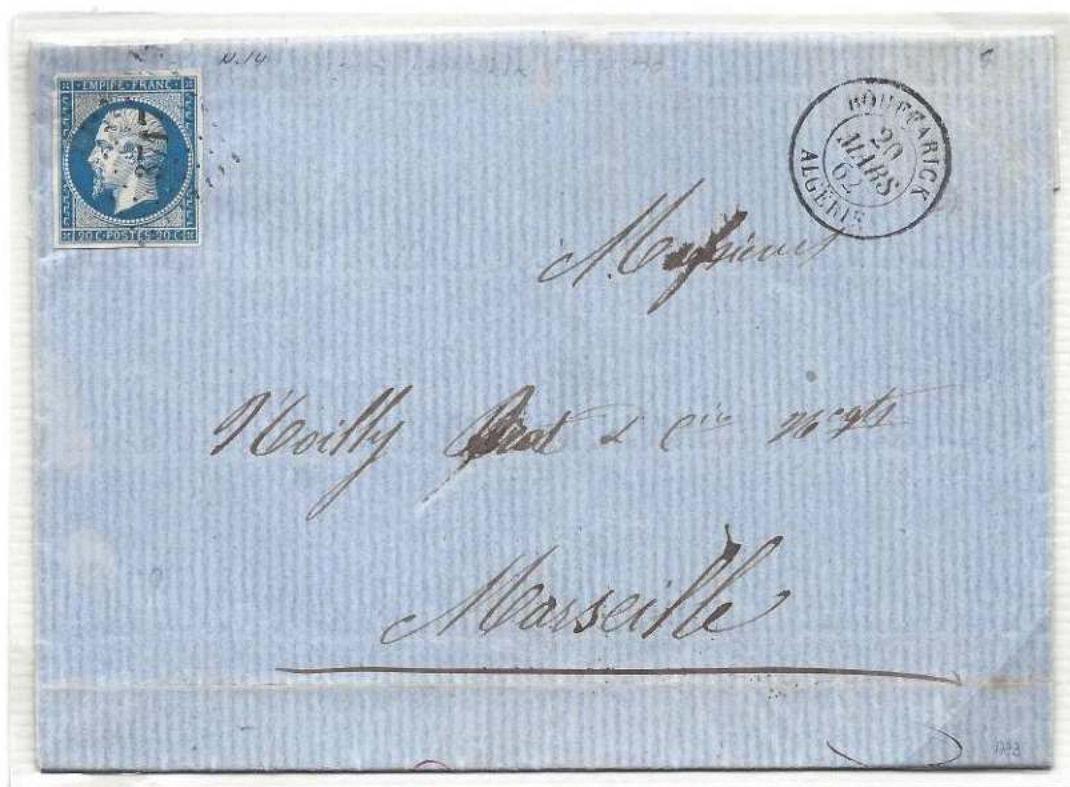 N. 14
EMPIRE FRANC.
20 C. POSTES 20 C.
BOUFFARICK
20
MARS
62
ALGÉRIE
Monsieur
Noilly Prat & Cie Negts
Marseille